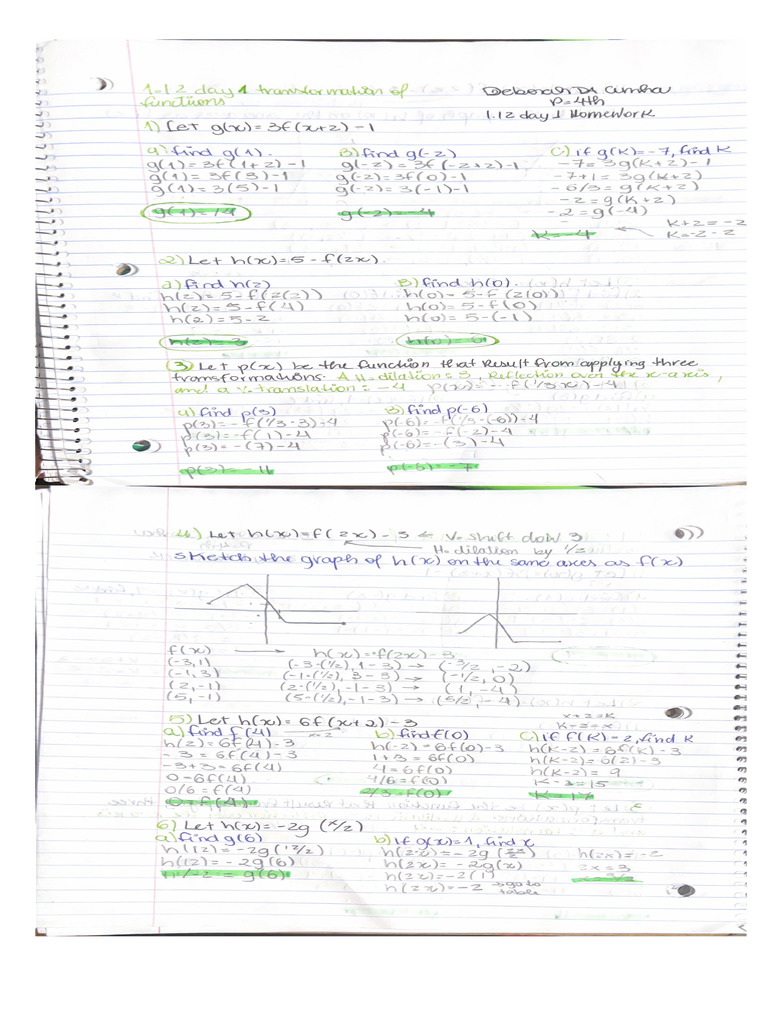 1.12 day 1 transformation of functions
Deborah DA Cunha
P=4th
1.12 day 1 Homework
1) Let g(x)=3f(x+2)-1
a) find g(1).
g(1)=3f(1+2)-1
g(1)=3f(3)-1
g(1)=3(5)-1
g(1)=14
B) find g(-2)
g(-2)=3f(-2+2)-1
g(-2)=3f(0)-1
g(-2)=3(-1)-1
g(-2)=-4
C) if g(K)=-7, find K
-7=3g(K+2)-1
-7+1=3g(K+2)
-6/3=g(K+2)
-2=g(K+2)
-2=g(-4)
K+2=-2
K=-2-2
K=-4
2) Let h(x)=5-f(2x).
a) find h(2)
h(2)=5-f(2(2))
h(2)=5-f(4)
h(2)=5-2
h(2)=3
B) find h(0).
h(0)=5-f(2(0))
h(0)=5-f(0)
h(0)=5-(-1)
h(0)=6
(3) Let p(x) be the function that result from applying three
transformations. A H-dilation=3, Reflection over the x-axis,
and a v-translation=-4 p(x)=-f(1/3x)-4
a) find p(3)
p(3)=-f(1/3·3)-4
p(3)=-f(1)-4
p(3)=-(7)-4
p(3)=-11
B) find p(-6)
p(-6)=-f(1/3·(-6))-4
p(-6)=-f(-2)-4
p(-6)=-(3)-4
p(-6)=-7
4) Let h(x)=f(2x)-3 ← V-shift dow 3
H-dilation by 1/3
sketch the graph of h(x) on the same axes as f(x)
f(x) → h(x)=f(2x)-3
(-3,1) (-3·(1/2), 1-3) → (-3/2, -2)
(-1,3) (-1·(1/2), 3-3) → (-1/2, 0)
(2,-1) (2·(1/2), -1-3) → (1, -4)
(5,-1) (5·(1/2), -1-3) → (5/2, -4)
5) Let h(x)=6f(x+2)-3
x+2=K
K-2=x
a) find f(4)
x=2
h(2)=6f(4)-3
-3=6f(4)-3
-3+3=6f(4)
0=6f(4)
0/6=f(4)
0=f(4)
b) find f(0)
h(-2)=6f(0)-3
1+3=6f(0)
4=6f(0)
4/6=f(0)
2/3=f(0)
C) if f(K)=2, find K
h(K-2)=6f(K)-3
h(K-2)=6(2)-3
h(K-2)=9
K-2=15
K=17
6) Let h(x)=-2g(x/2)
a) find g(6)
h(12)=-2g(12/2)
h(12)=-2g(6)
b) if g(x)=1, find x
h(2x)=-2g(2x/2)
h(2x)=-2g(x)
h(2x)=-2(1)
h(2x)=-2 → go to table
h(2x)=-2
2x=3